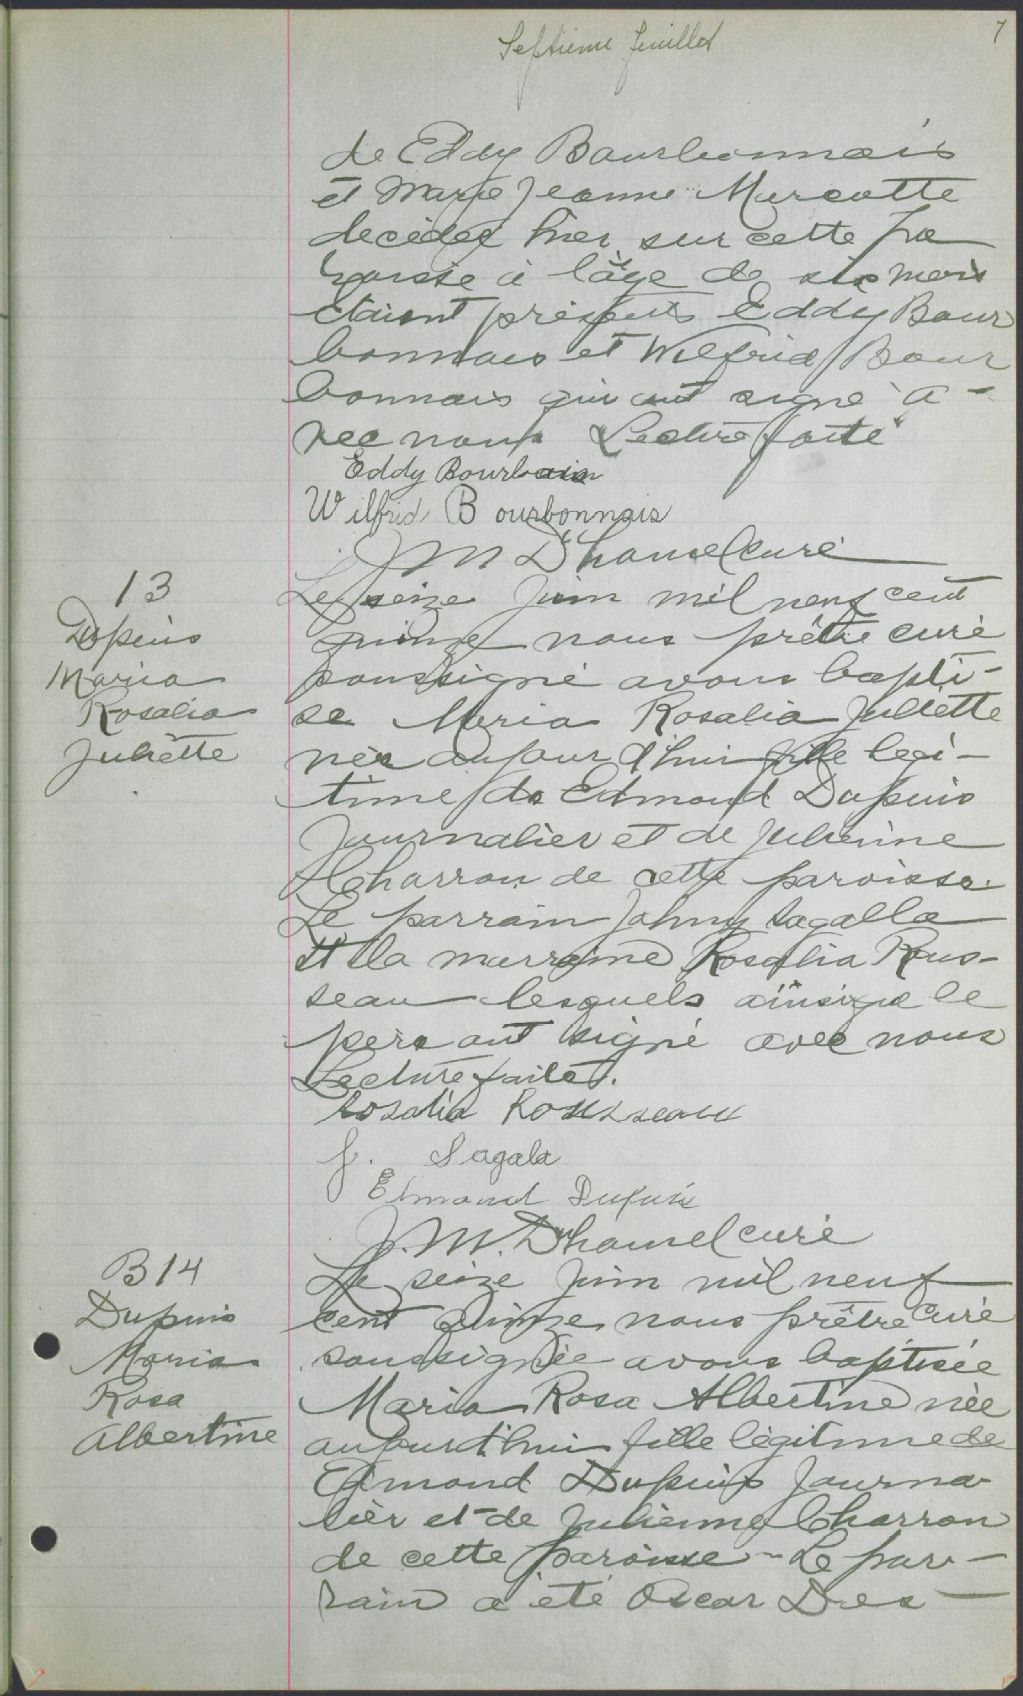 Septieme feuillet
7
de Eddy Bourbonnais
et Marie Jeanne Marcotte
decédée hier sur cette pa
roisse à l'âge de six mois
étaient présents Eddy Bour
bonnais et Wilfrid Bour
bonnais qui ont signé a-
vec nous Lecture faite
Eddy Bourbonnais
Wilfrid Bourbonnais
J M Duhamel curé
13
Dupuis
Maria
Rosalia
Juliette
Le seize Juin mil neuf cent
quinze nous prêtre curé
soussigné avons bapti-
sé Maria Rosalia Juliette
née aujourd'hui fille légi-
time de Edmond Dupuis
Journalier et de Julienne
Charron de cette paroisse.
Le parrain Johny Lagalla
et la marraine Rosalia Rous-
seau lesquels ainsique le
père ont signé avec nous
Lecture faite.
Rosalia Rousseau
J. Lagala
Edmond Dupuis
J. M. Duhamel curé
B14
Dupuis
Maria
Rosa
Albertine
Le seize Juin mil neuf
cent Quinze nous prêtre curé
soussignée avons baptisée
Maria Rosa Albertine née
aujourd'hui fille légitime de
Edmond Dupuis Journa
lier et de Julienne Charron
de cette paroisse - Le par-
rain a été Oscar Des